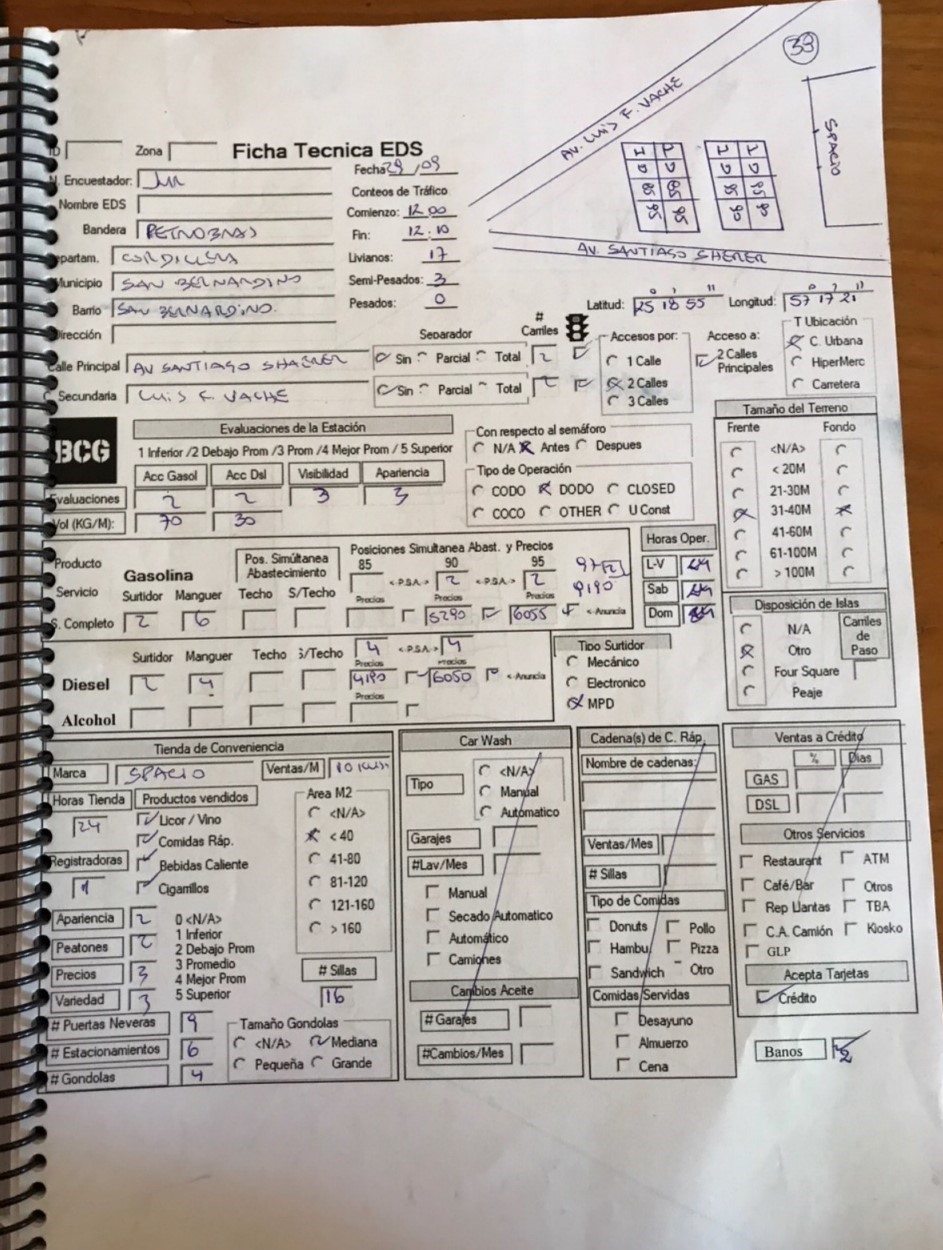 33
AV. LUIS F. VACHE
SPACIO
AV. SANTIAGO SHERER
Zona
Ficha Tecnica EDS
Fecha 29/09
Encuestador:
Conteos de Tráfico
Nombre EDS
Comienzo: 12.00
Bandera PETROBRAS
Fin: 12:10
Departam. CORDILLERA
Livianos: 17
Municipio SAN BERNARDINO
Semi-Pesados: 3
Barrio SAN BERNARDINO.
Pesados: 0
Latitud: 25 18 55 Longitud: 57 17 21
Dirección
Separador # Carriles
Accesos por: Acceso a: T Ubicación
Calle Principal AV SANTIAGO SHAERER Sin Parcial Total 2
1 Calle 2 Calles Principales C. Urbana
Secundaria LUIS F. VACHE Sin Parcial Total 2
2 Calles HiperMerc
3 Calles Carretera
BCG
Evaluaciones de la Estación
1 Inferior /2 Debajo Prom /3 Prom /4 Mejor Prom / 5 Superior
Acc Gasol Acc Dsl Visibilidad Apariencia
Evaluaciones 2 2 3 3
Vol (KG/M): 70 30
Con respecto al semáforo
N/A Antes Despues
Tipo de Operación
CODO DODO CLOSED
COCO OTHER U Const
Tamaño del Terreno
Frente Fondo
<N/A>
< 20M
21-30M
31-40M
41-60M
61-100M
> 100M
Producto
Servicio
Gasolina
Pos. Simúltanea Abastecimiento
Posiciones Simultanea Abast. y Precios
85 90 95 97
<P.S.A> 2 <P.S.A> 2 9190
Surtidor Manguer Techo S/Techo Precios Precios Precios
S. Completo 2 6 5290 6055 <-Anuncia
Horas Oper.
L-V 24
Sab 24
Dom 24
Surtidor Manguer Techo S/Techo 4 <P.S.A> 4
Precios Precios
Diesel 2 4 4190 6050 <-Anuncia
Precios
Alcohol
Tipo Surtidor
Mecánico
Electronico
MPD
Disposición de Islas
N/A
Otro
Four Square
Peaje
Carriles de Paso
Tienda de Conveniencia
Marca SPACIO Ventas/M
Horas Tienda 24
Productos vendidos
Licor / Vino
Comidas Ráp.
Bebidas Caliente
Cigarrillos
Registradoras 1
Area M2
<N/A>
< 40
41-80
81-120
121-160
> 160
Apariencia 2
Peatones 2
Precios 3
Variedad 3
0 <N/A>
1 Inferior
2 Debajo Prom
3 Promedio
4 Mejor Prom
5 Superior
# Sillas
16
# Puertas Neveras 9
# Estacionamientos 6
# Gondolas 4
Tamaño Gondolas
<N/A> Mediana
Pequeña Grande
Car Wash
Tipo
<N/A>
Manual
Automatico
Garajes
#Lav/Mes
Manual
Secado Automatico
Automático
Camiones
Cambios Aceite
# Garajes
#Cambios/Mes
Cadena(s) de C. Ráp.
Nombre de cadenas:
Ventas/Mes
# Sillas
Tipo de Comidas
Donuts Pollo
Hambu. Pizza
Sandwich Otro
Comidas Servidas
Desayuno
Almuerzo
Cena
Ventas a Crédito
% Dias
GAS
DSL
Otros Servicios
Restaurant ATM
Café/Bar Otros
Rep Llantas TBA
C.A. Camión Kiosko
GLP
Acepta Tarjetas
Crédito
Banos 2